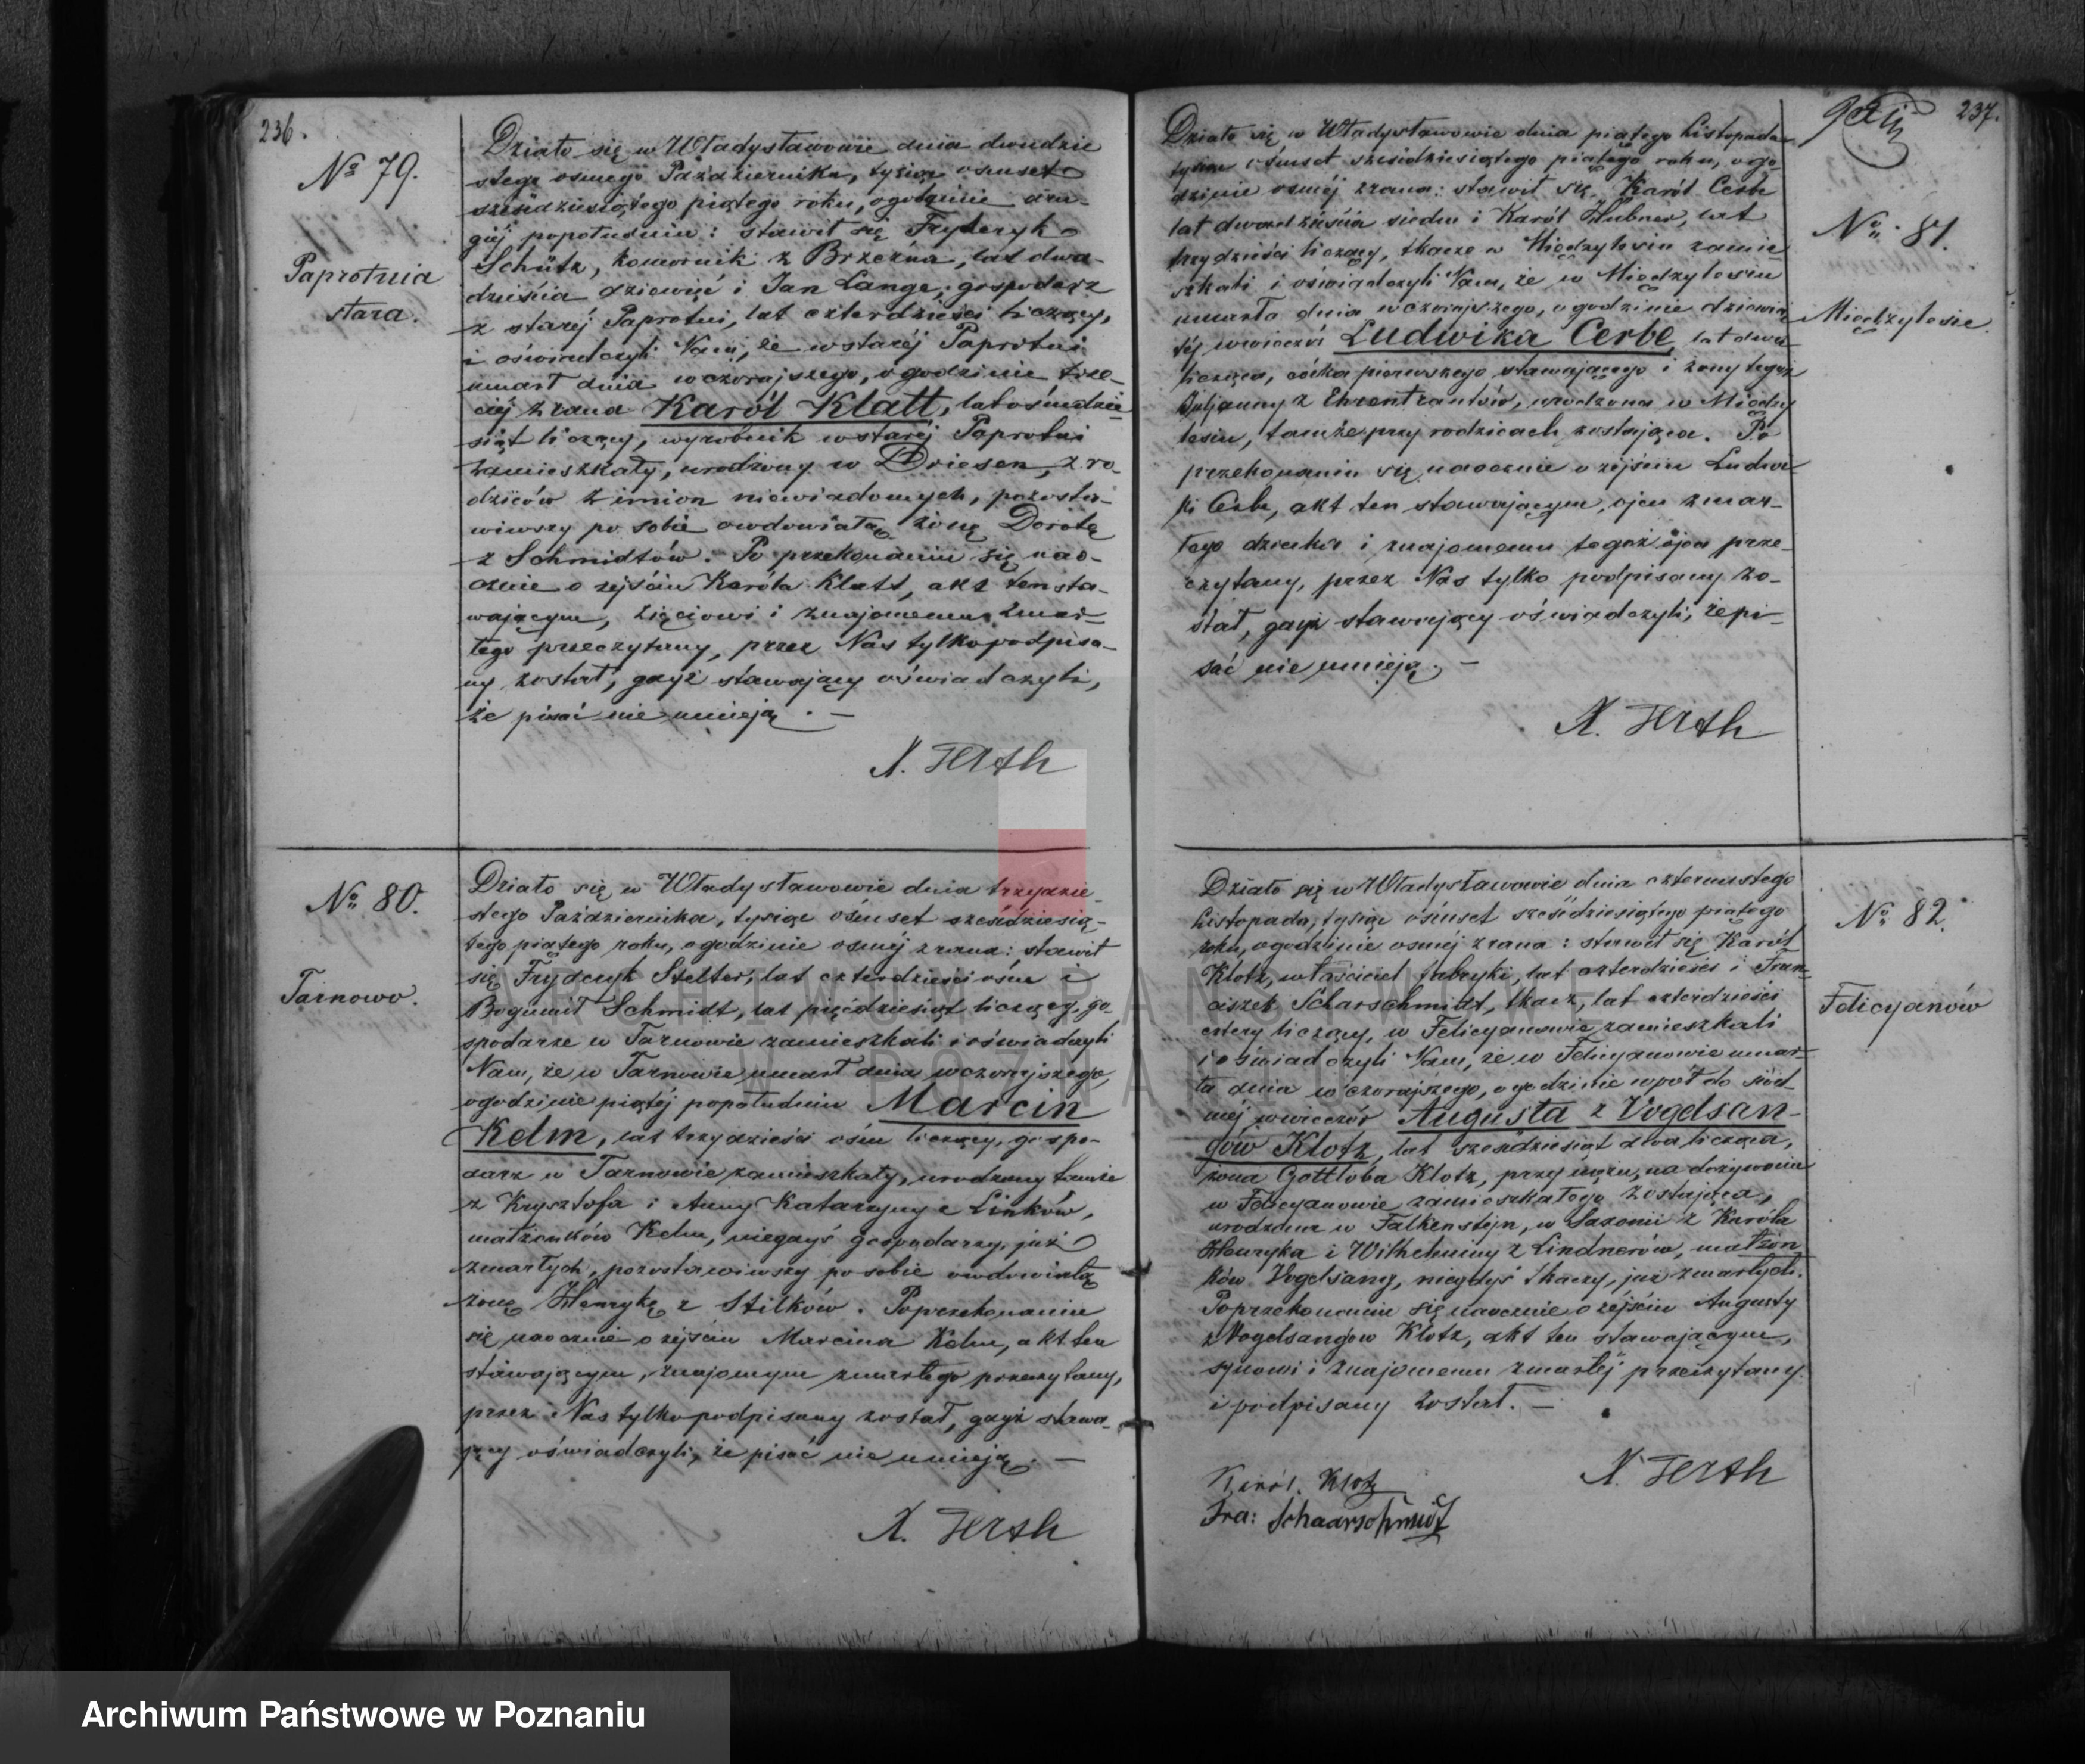 236.
No 79.
Paprotnia
stara.
Działo się w Władysławowie dnia dwudzie
stego osmego Października, tysiąc osmset
sześdziesiątego piątego roku, ogodzinie dru-
giéj popołudniu: stawił się Fryderyk
Schütz, komornik z Brzeźna, lat dwa-
dzieścia dziewięć i Jan Lange, gospodarz
z starej Paprotni, lat czterdzieści liczący,
i oświadczyli Nam, że wstaréj Paprotni
umarł dnia wczorajszego, ogodzinie trze-
ciéj zrana Karól Klatt, lat ośmdzie
siąt liczący, wyrobnik wstaréj Paprotni
zamieszkały, urodzony w Driesen, z ro-
dziców z imion niewiadomych, pozosta-
wiwszy po sobie owdowiałą żonę Dorotę
z Schmidtów. Po przekonaniu się nao-
cznie o zejściu Karóla Klatt, akt ten sta-
wającym, zięciowi i znajomemu zmar-
łego przeczytany, przez Nas tylko podpisa-
ny został, gdyż stawający oświadczyli,
że pisać nie umieją. —
N. Herth
No 80.
Tarnowo.
Działo się w Władysławowie dnia trzydzie-
stego Października, tysiąc ośmset sześdziesią-
tego piątego roku, ogodzinie osméj zrana: stawił
się Fryderyk Stelter, lat czterdzieści ośm i
Bogumił Schmidt, lat pięćdziesiąt liczący, go-
spodarze w Tarnowie zamieszkali i oświadczyli
Nam, że w Tarnowie umarł dnia wczorajszego,
ogodzinie piątéj popołudniu Marcin
Kelm, lat trzydzieści ośm liczący, gospo-
darz w Tarnowie zamieszkały, urodzony tamże
z Krysztofa i Anny Katarzyny z Linków,
małżonków Kelm, niegdyś gospodarzy, już
zmarłych, pozostawiwszy po sobie owdowiałą
żonę Henrykę z Stilków. Poprzekonaniu
się naocznie o zejściu Marcina Kelm, akt ten
stawającym, znajomym zmarłego przeczytany,
przez Nas tylko podpisany został, gdyż stawa-
jący oświadczyli, że pisać nie umieją. —
N. Herth
237.
No. 81.
Międzylesie.
Działo się w Władysławowie dnia piątego Listopada
tysiąc ośmset sześdziesiątego piątego roku, ogo
dzinie osméj zrana: stawił się Karól Cerbe
lat dwadzieścia siedm i Karól Hubner, lat
trzydzieści liczący, tkacze w Międzylesiu zamie
szkali i oświadczyli Nam, że w Międzylesiu
umarła dnia wczorajszego, ogodzinie dziewią
téj wwieczór Ludwika Cerbe, lat dwa
licząca, córka pierwszego stawającego i żony tegoż
Juljanny z Ehrentrautów, urodzona w Między
lesiu, tamże przy rodzicach zostająca. Po
przekonaniu się naocznie o zejściu Ludwi
ki Cerbe, akt ten stawającym, ojcu zmar-
łego dziecka i znajomemu tegoż ojca prze-
czytany, przez Nas tylko podpisany zo-
stał, gdyż stawający oświadczyli, że pi-
sać nie umieją. —
N. Herth
No 82.
Felicyanów
Działo się w Władysławowie dnia czternastego
Listopada, tysiąc ośmset sześdziesiątego piątego
roku, ogodzinie osméj zrana: stawił się Karól
Klotz, właściciel fabryki, lat czterdzieści i Fran-
ciszek Scharschmidt, tkacz, lat czterdzieści
cztery liczący, w Felicyanowie zamieszkali
i oświadczyli Nam, że w Felicyanowie umar-
ła dnia wczorajszego, ogodzinie wpół do siód-
méj wwieczór Augusta z Vogelsan-
gów Klotz, lat sześdziesiąt dwa licząca,
żona Gottloba Klotz, przy mężu, na dożywociu
w Felicyanowie zamieszkałego zostająca,
urodzona w Falkenstejn, w Saxonii z Karóla
Henryka i Wilhelminy z Lindnerów, małżon
ków Vogelsang, niegdyś tkaczy, już zmarłych.
Poprzekonaniu się naocznie o zejściu Augusty
z Vogelsangów Klotz, akt ten stawającym,
synowi i znajomemu zmarłéj przeczytany
i podpisany został. —
N. Herth
Karól. Klotz
Fra: Schaarschmidt
ARCHIWUM PAŃSTWOWE
W POZNANIU
Archiwum Państwowe w Poznaniu